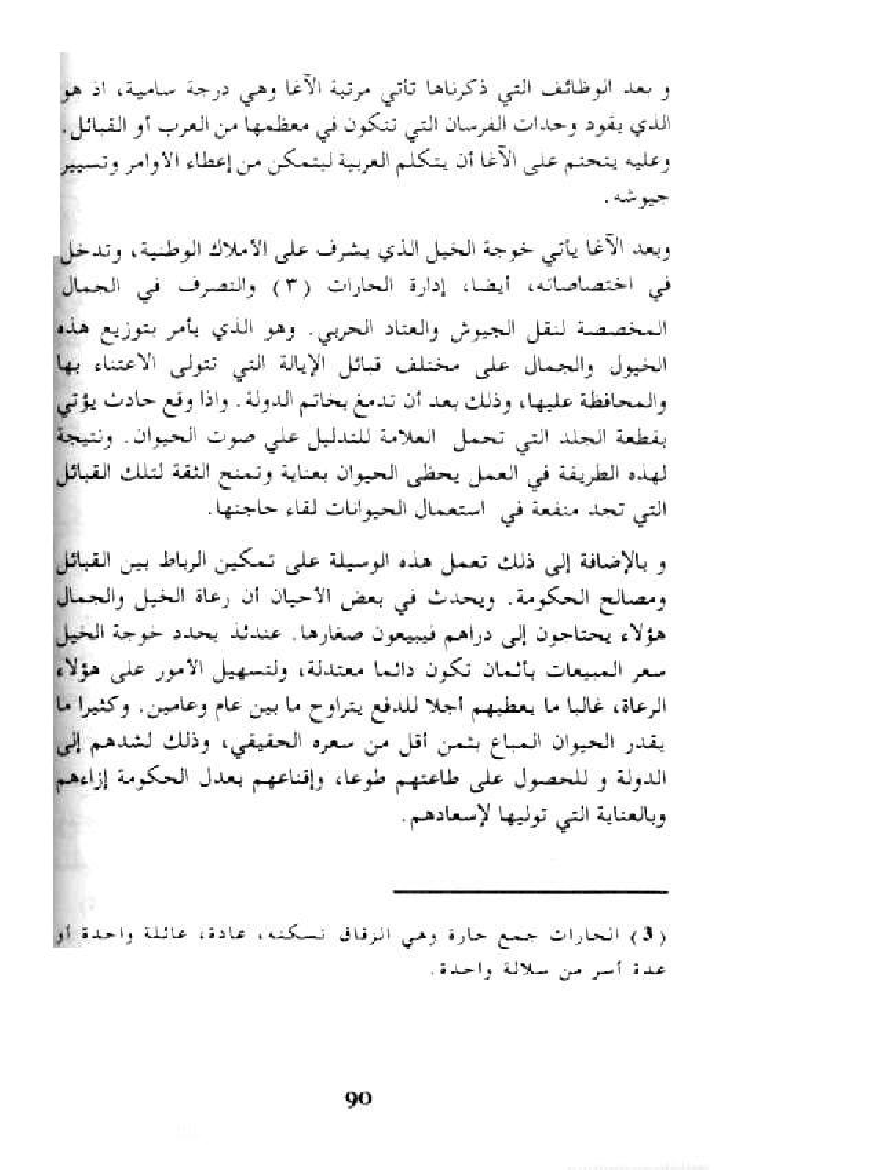 و بعد الوظائف التي ذكرناها تأتي مرتبة الآغا وهي درجة سامية، اذ هو
الذي يقود وحدات الفرسان التي تتكون في معظمها من العرب أو القبائل.
وعليه يتحتم على الآغا أن يتكلم العربية ليتمكن من إعطاء الاوامر وتسيير
جيوشه.
وبعد الآغا يأتي خوجة الخيل الذي يشرف على الأملاك الوطنية، وتدخل
في اختصاصاته، أيضا، إدارة الحارات (٣) والتصرف في الجمال
المخصصة لنقل الجيوش والعتاد الحربي. وهو الذي يأمر بتوزيع هذه
الخيول والجمال على مختلف قبائل الإيالة التي تتولى الاعتناء بها
والمحافظة عليها، وذلك بعد أن تدمغ بخاتم الدولة. واذا وقع حادث يؤتي
بقطعة الجلد التي تحمل العلامة للتدليل على صوت الحيوان. ونتيجة
لهذه الطريقة في العمل يحظى الحيوان بعناية وتمنح الثقة لتلك القبائل
التي تجد منفعة في استعمال الحيوانات لقاء حاجتها.
و بالإضافة إلى ذلك تعمل هذه الوسيلة على تمكين الرباط بين القبائل
ومصالح الحكومة. ويحدث في بعض الأحيان أن رعاة الخيل والجمال
هؤلاء يحتاجون إلى دراهم فيبيعون صغارها. عندئذ يحدد خوجة الخيل
سعر المبيعات بأثمان تكون دائما معتدلة، ولتسهيل الامور على هؤلاء
الرعاة، غالبا ما يعطيهم أجلا للدفع يتراوح ما بين عام وعامين. وكثيرا ما
يقدر الحيوان المباع بثمن أقل من سعره الحقيقي، وذلك لشدهم إلى
الدولة و للحصول على طاعتهم طوعا، وإقناعهم بعدل الحكومة إزاءهم
وبالعناية التي توليها لإسعادهم.
(3) الحارات جمع حارة وهي الزقاق تسكنه، عادة، عائلة واحدة أو
عدة أسر من سلالة واحدة.
90